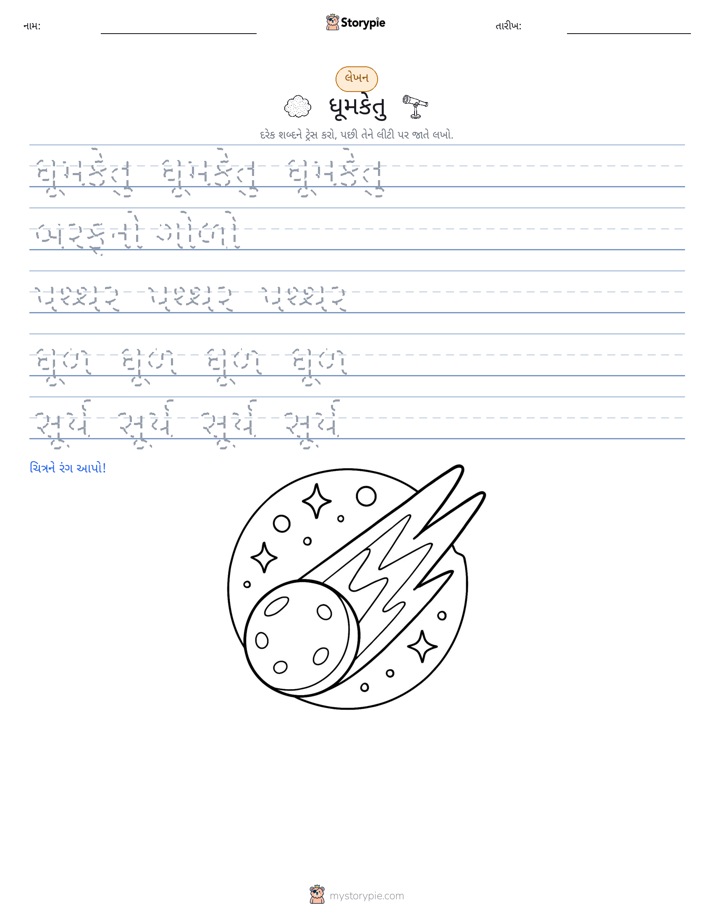 નામ:
Storypie
તારીખ:
લેખન
ધૂમકેતુ
દરેક શબ્દને ટ્રેસ કરો, પછી તેને લીટી પર જાતે લખો.
ધૂમકેતુ ધૂમકેતુ ધૂમકેતુ
બરફનો ગોળો
પથ્થર પથ્થર પથ્થર
ધૂળ ધૂળ ધૂળ ધૂળ
સૂર્ય સૂર્ય સૂર્ય સૂર્ય
ચિત્રને રંગ આપો!
mystorypie.com